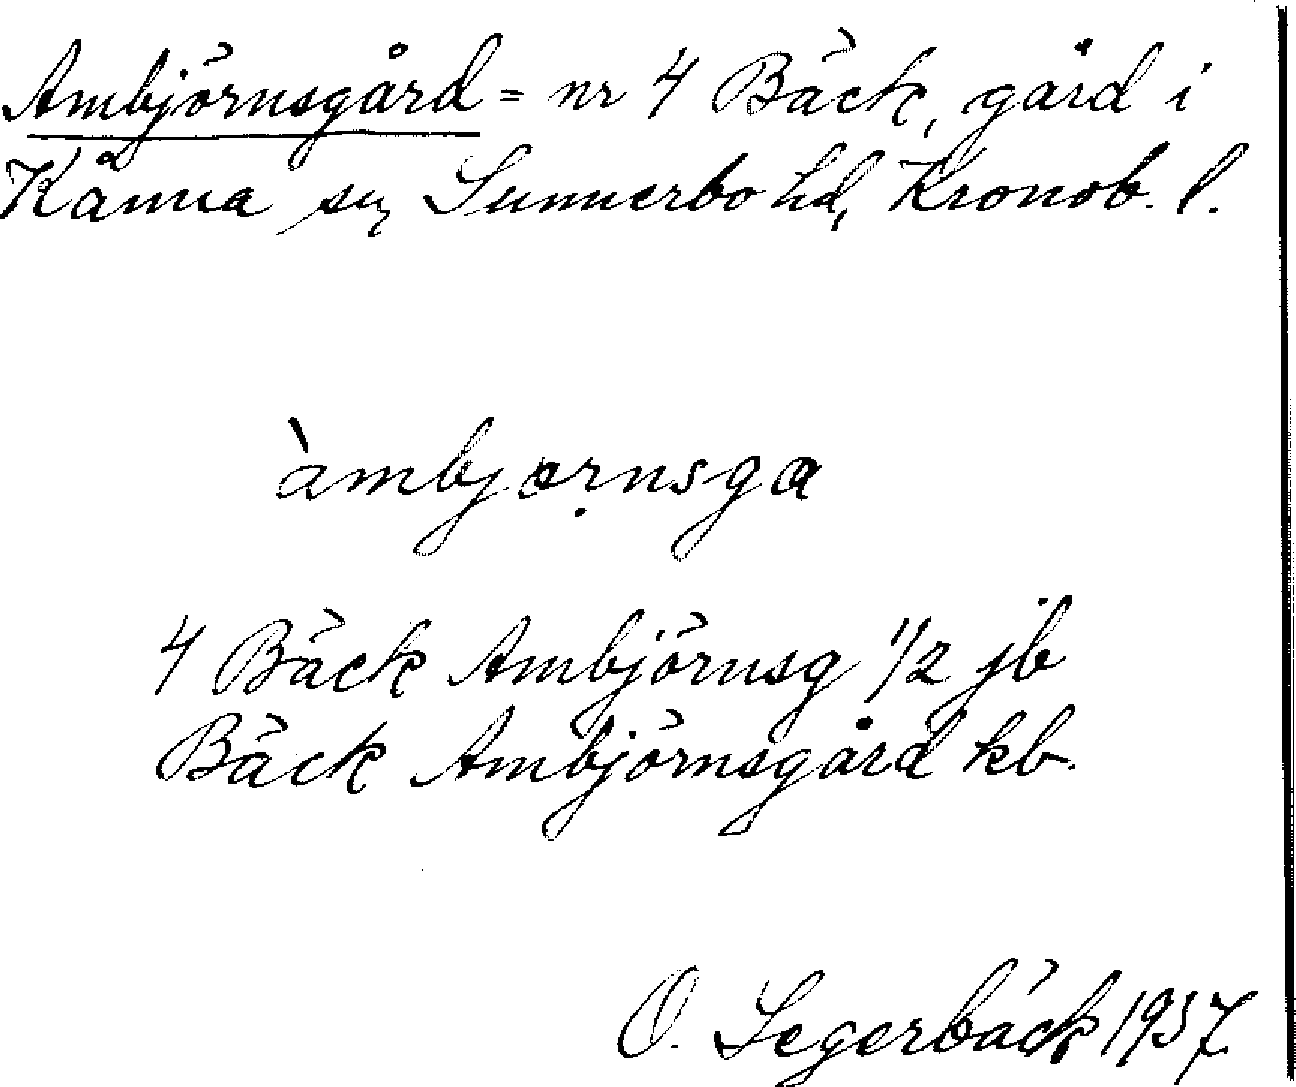 Ambjörnsgård = nr 4 Bäck, gård i
Kånna sn, Sunnerbo hd, Kronob. l.
àmbjørnsga
4 Bäck Ambjörnsg 1/2 jb
Bäck Ambjörnsgård kb.
O. Segerbäck 1937